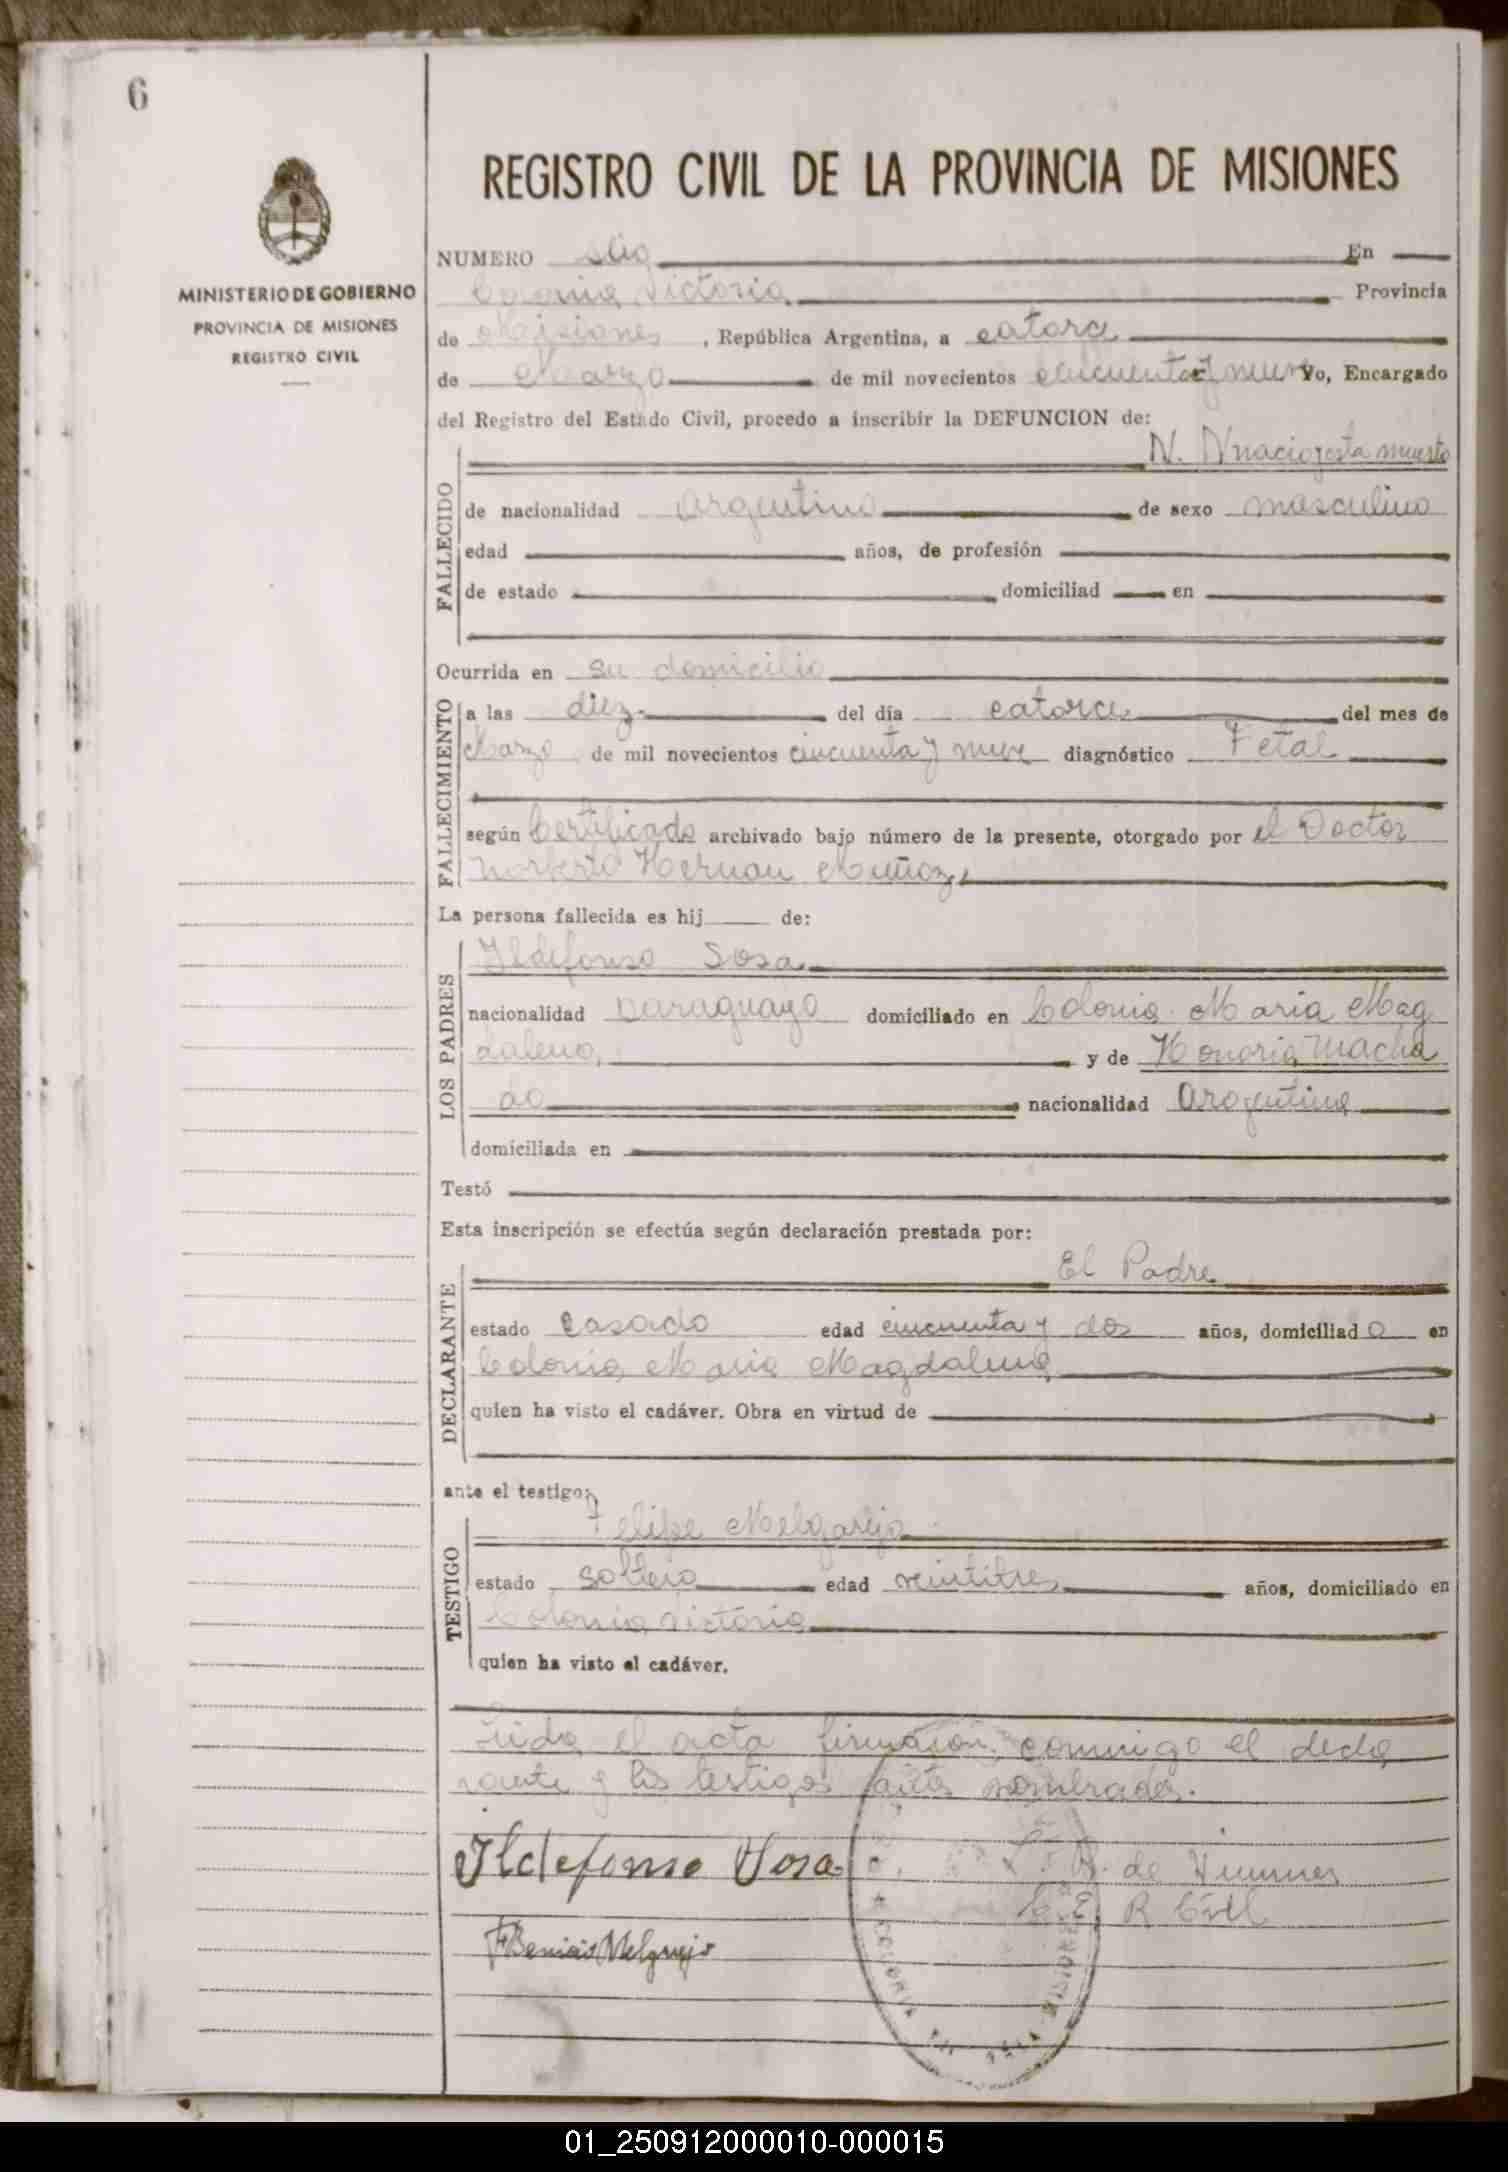 6
REGISTRO CIVIL DE LA PROVINCIA DE MISIONES
MINISTERIO DE GOBIERNO
PROVINCIA DE MISIONES
REGISTRO CIVIL
NUMERO seis En
Colonia Victoria Provincia
de Misiones, República Argentina, a catorce
de Marzo de mil novecientos cincuenta y nueve Yo, Encargado
del Registro del Estado Civil, procedo a inscribir la DEFUNCION de:
N. N nacio muerto
FALLECIDO
de nacionalidad Argentino de sexo masculino
edad años, de profesión
de estado domiciliad en
Ocurrida en su domicilio
FALLECIMIENTO
a las diez del día catorce del mes de
Marzo de mil novecientos cincuenta y nueve diagnóstico Fetal
según Certificado archivado bajo número de la presente, otorgado por el Doctor
Norberto Hernan Muñoz,
La persona fallecida es hij de:
LOS PADRES
Ildefonso Sosa
nacionalidad paraguayo domiciliado en Colonia Maria Mag
dalena, y de Honoria Macha
do nacionalidad Argentina
domiciliada en
Testó
Esta inscripción se efectúa según declaración prestada por:
El Padre
DECLARANTE
estado casado edad cincuenta y dos años, domiciliad o en
Colonia Maria Magdalena
quien ha visto el cadáver. Obra en virtud de
ante el testigo:
Felipe Melgarejo
TESTIGO
estado soltero edad veintitres años, domiciliado en
Colonia Victoria
quien ha visto el cadáver.
Leida el acta firmaron conmigo el decla
rante y los testigos antes nombrados.
Ildefonso Sosa
de
E. R Civil
Melgarejo
COLONIA VICTORIA MISIONES
01_250912000010-000015